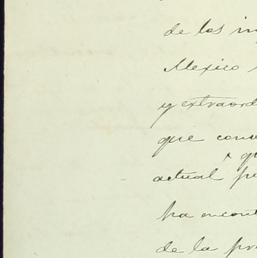 de los in
Mexico
y extraord
que conv
qu
actual pe
ha encont
de la pro